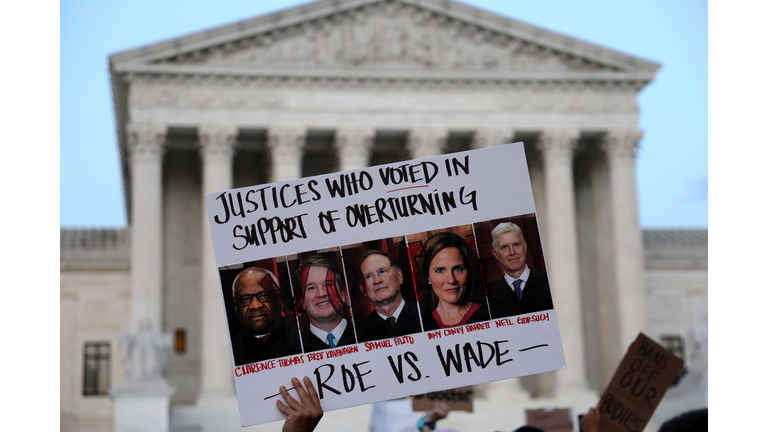 JUSTICES WHO VOTED IN
SUPPORT OF OVERTURNING
CLARENCE THOMAS BRETT KAVANAUGH SAMUEL ALITO AMY CONEY BARRETT NEIL GORSUCH
— ROE VS. WADE —
BANS OFF
OUR
BODIES